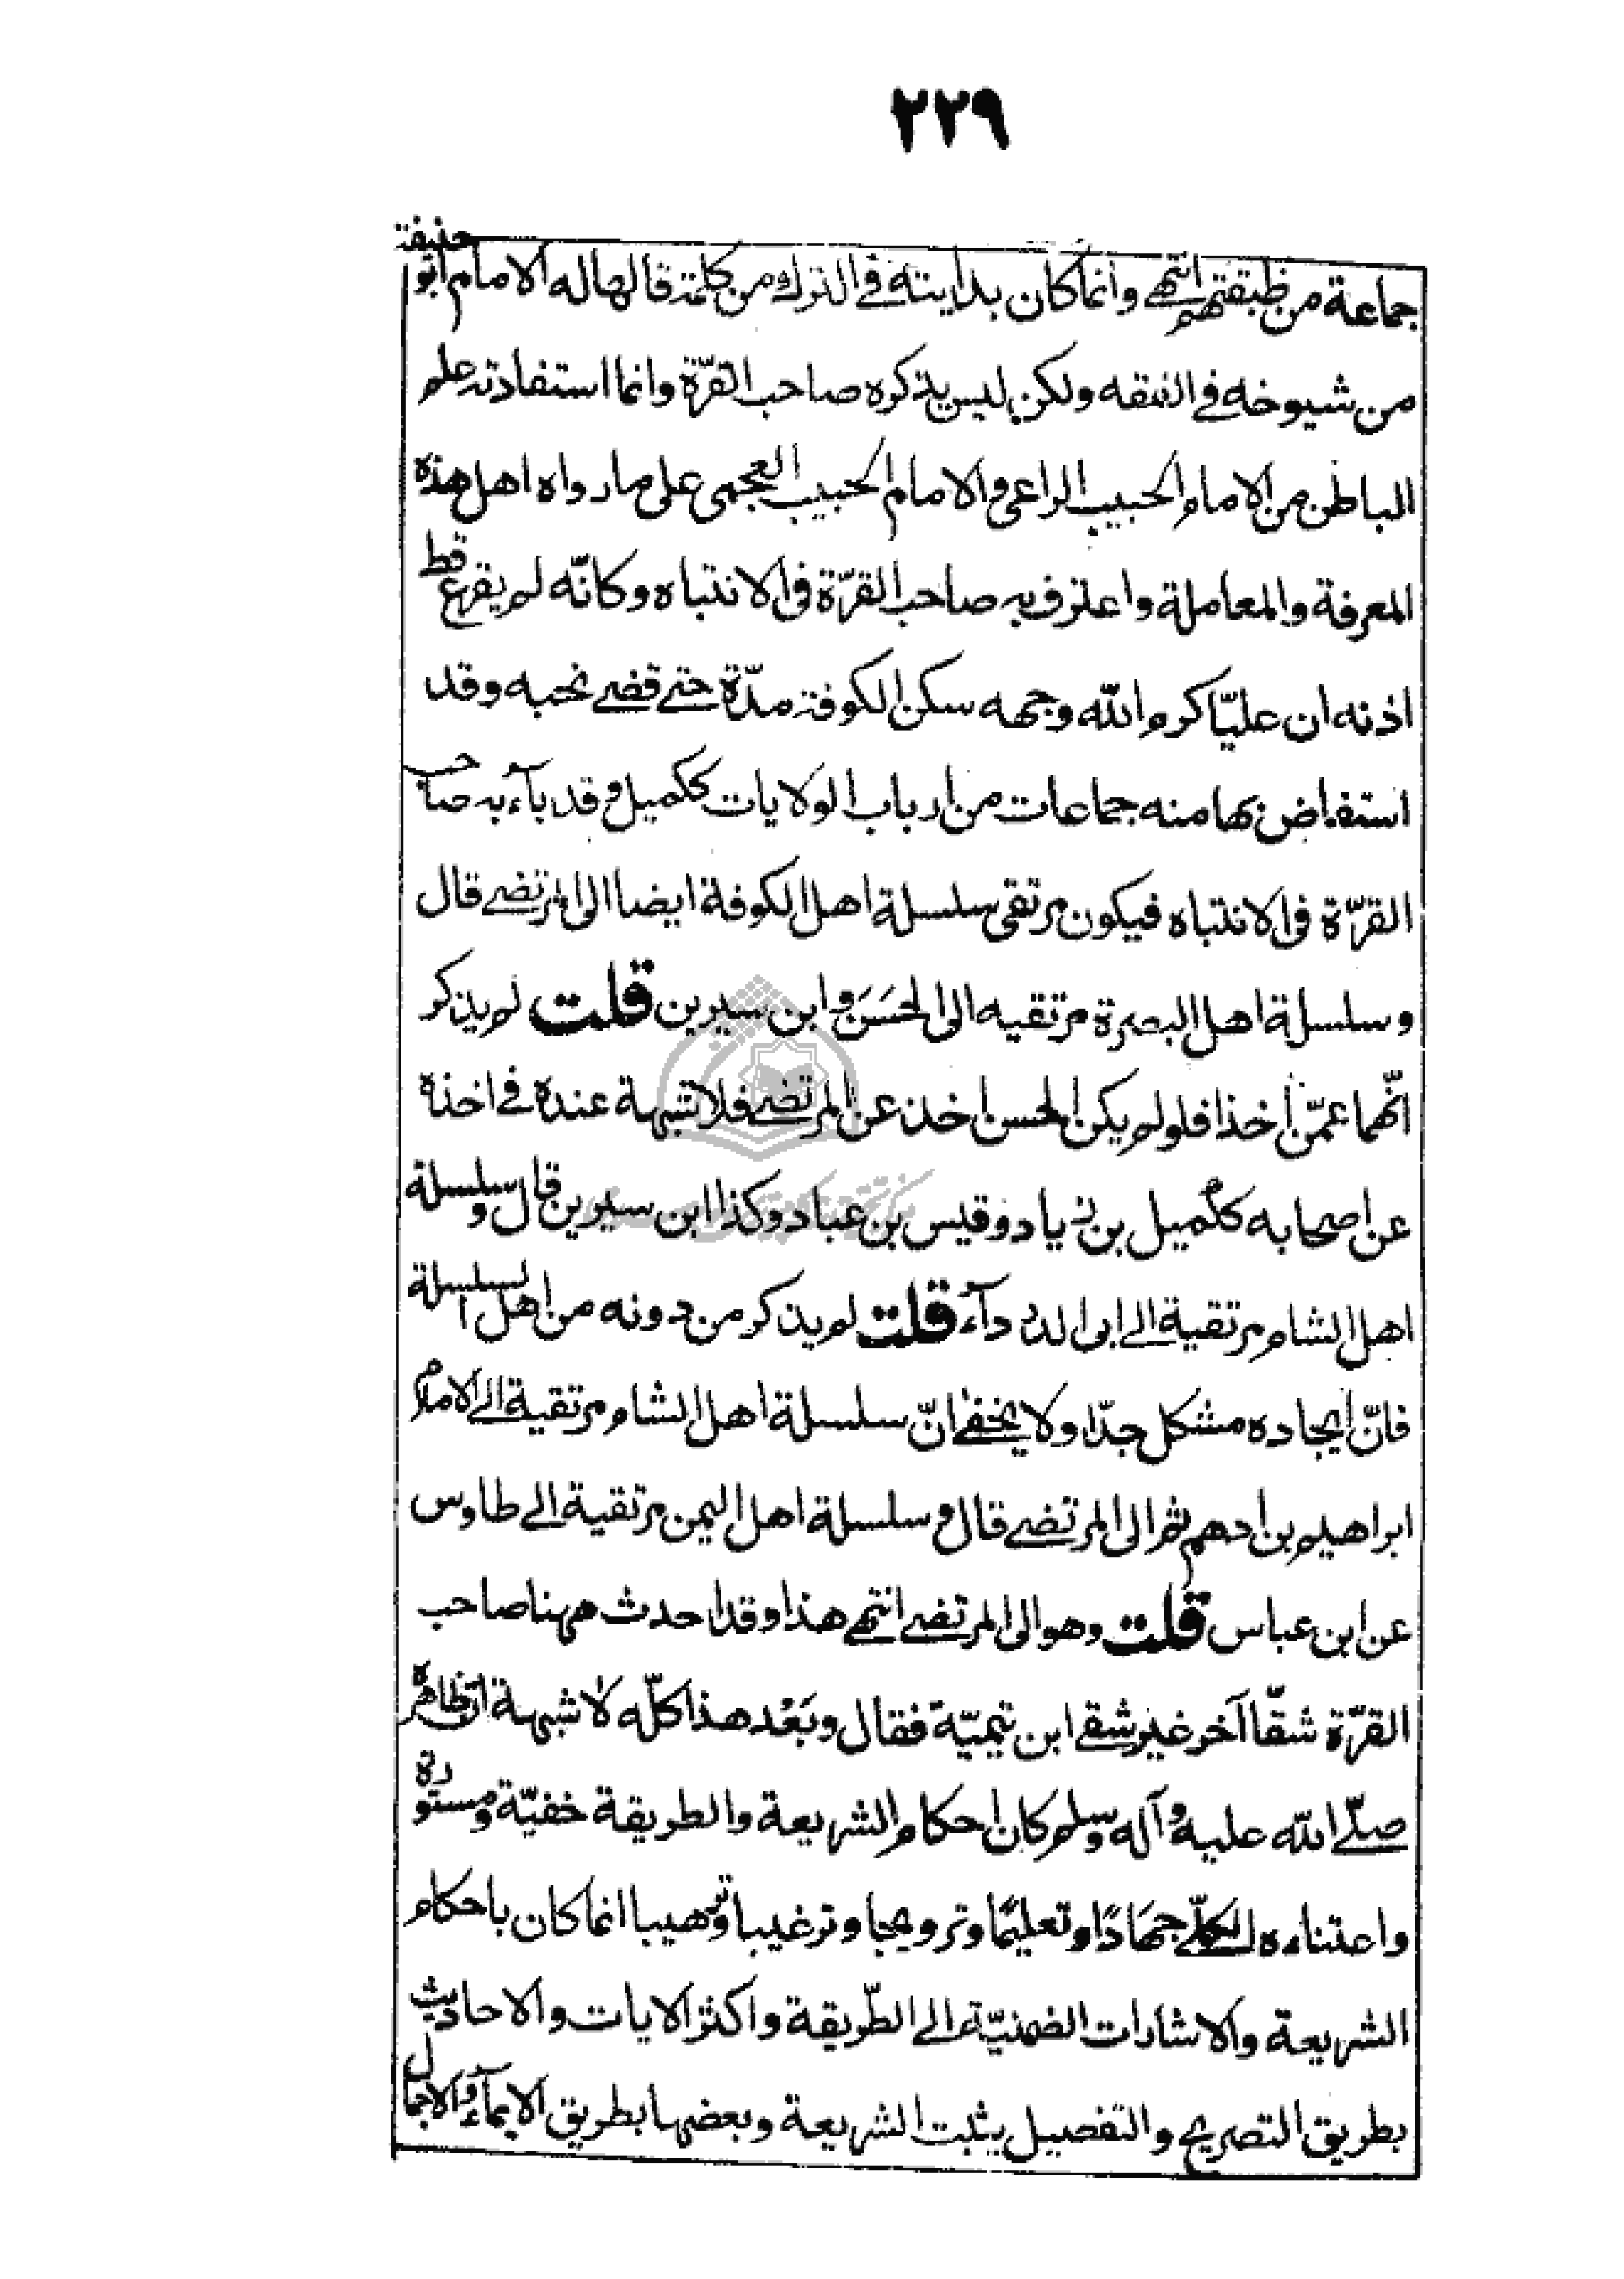 ٢٢٩
جماعة من طبقتهم انتهى وانما كان بدايته في الترك من كلمة قالها له الامام ابو حنيفة
من شيوخه في الفقه ولكن ليس يذكره صاحب القرّة وانما استفادته علم
الباطن من الامام الحبيب الراعي والامام الحبيب العجمي على ما رواه اهل هذه
المعرفة والمعاملة واعترف به صاحب القرّة في الانتباه وكانّه لم يقرع قط
اذنه ان عليّا كرم الله وجهه سكن الكوفة مدّة حتى قضى نحبه وقد
استفاض بها منه جماعات من ارباب الولايات ككميل وقد باء به صاحب
القرّة في الانتباه فيكون مرتقى سلسلة اهل الكوفة ايضا الى المرتضى قال
وسلسلة اهل البصرة مرتقيه الى الحَسَن وابن سيرين قلت لم يذكر
انّهما عمّن اخذا فلو لم يكن الحسن اخذ عن المرتضى فلا شبهة عنده في اخذه
عن اصحابه ككميل بن زياد وقيس بن عباد وكذا ابن سيرين قال وسلسلة
اهل الشام مرتقية الى ابى الدرداء قلت لم يذكر من دونه من اهل السلسلة
فانّ ايجاده مشكل جدّا ولا يخفى انّ سلسلة اهل الشام مرتقية الى الامام
ابراهيم بن ادهم ثم الى المرتضى قال وسلسلة اهل اليمن مرتقية الى طاوس
عن ابن عباس قلت وهو الى المرتضى انتهى هذا وقد احدث ههنا صاحب
القرّة شقّا آخر غير شقى ابن تيميّة فقال وبَعْد هذا كلّه لا شبهة ان ظاهره
صلّى الله عليه وآله وسلم كان احكام الشريعة والطريقة خفيّة ومستورة
واعتناءه الكلّى جهَادًا وتعليمًا وترويجا وترغيبا وترهيبا انما كان باحكام
الشريعة والاشارات الضمنيّة الى الطّريقة واكثر الايات والاحاديث
بطريق التصريح والتفصيل يثبت الشريعة وبعضها بطريق الايماء والاجمال